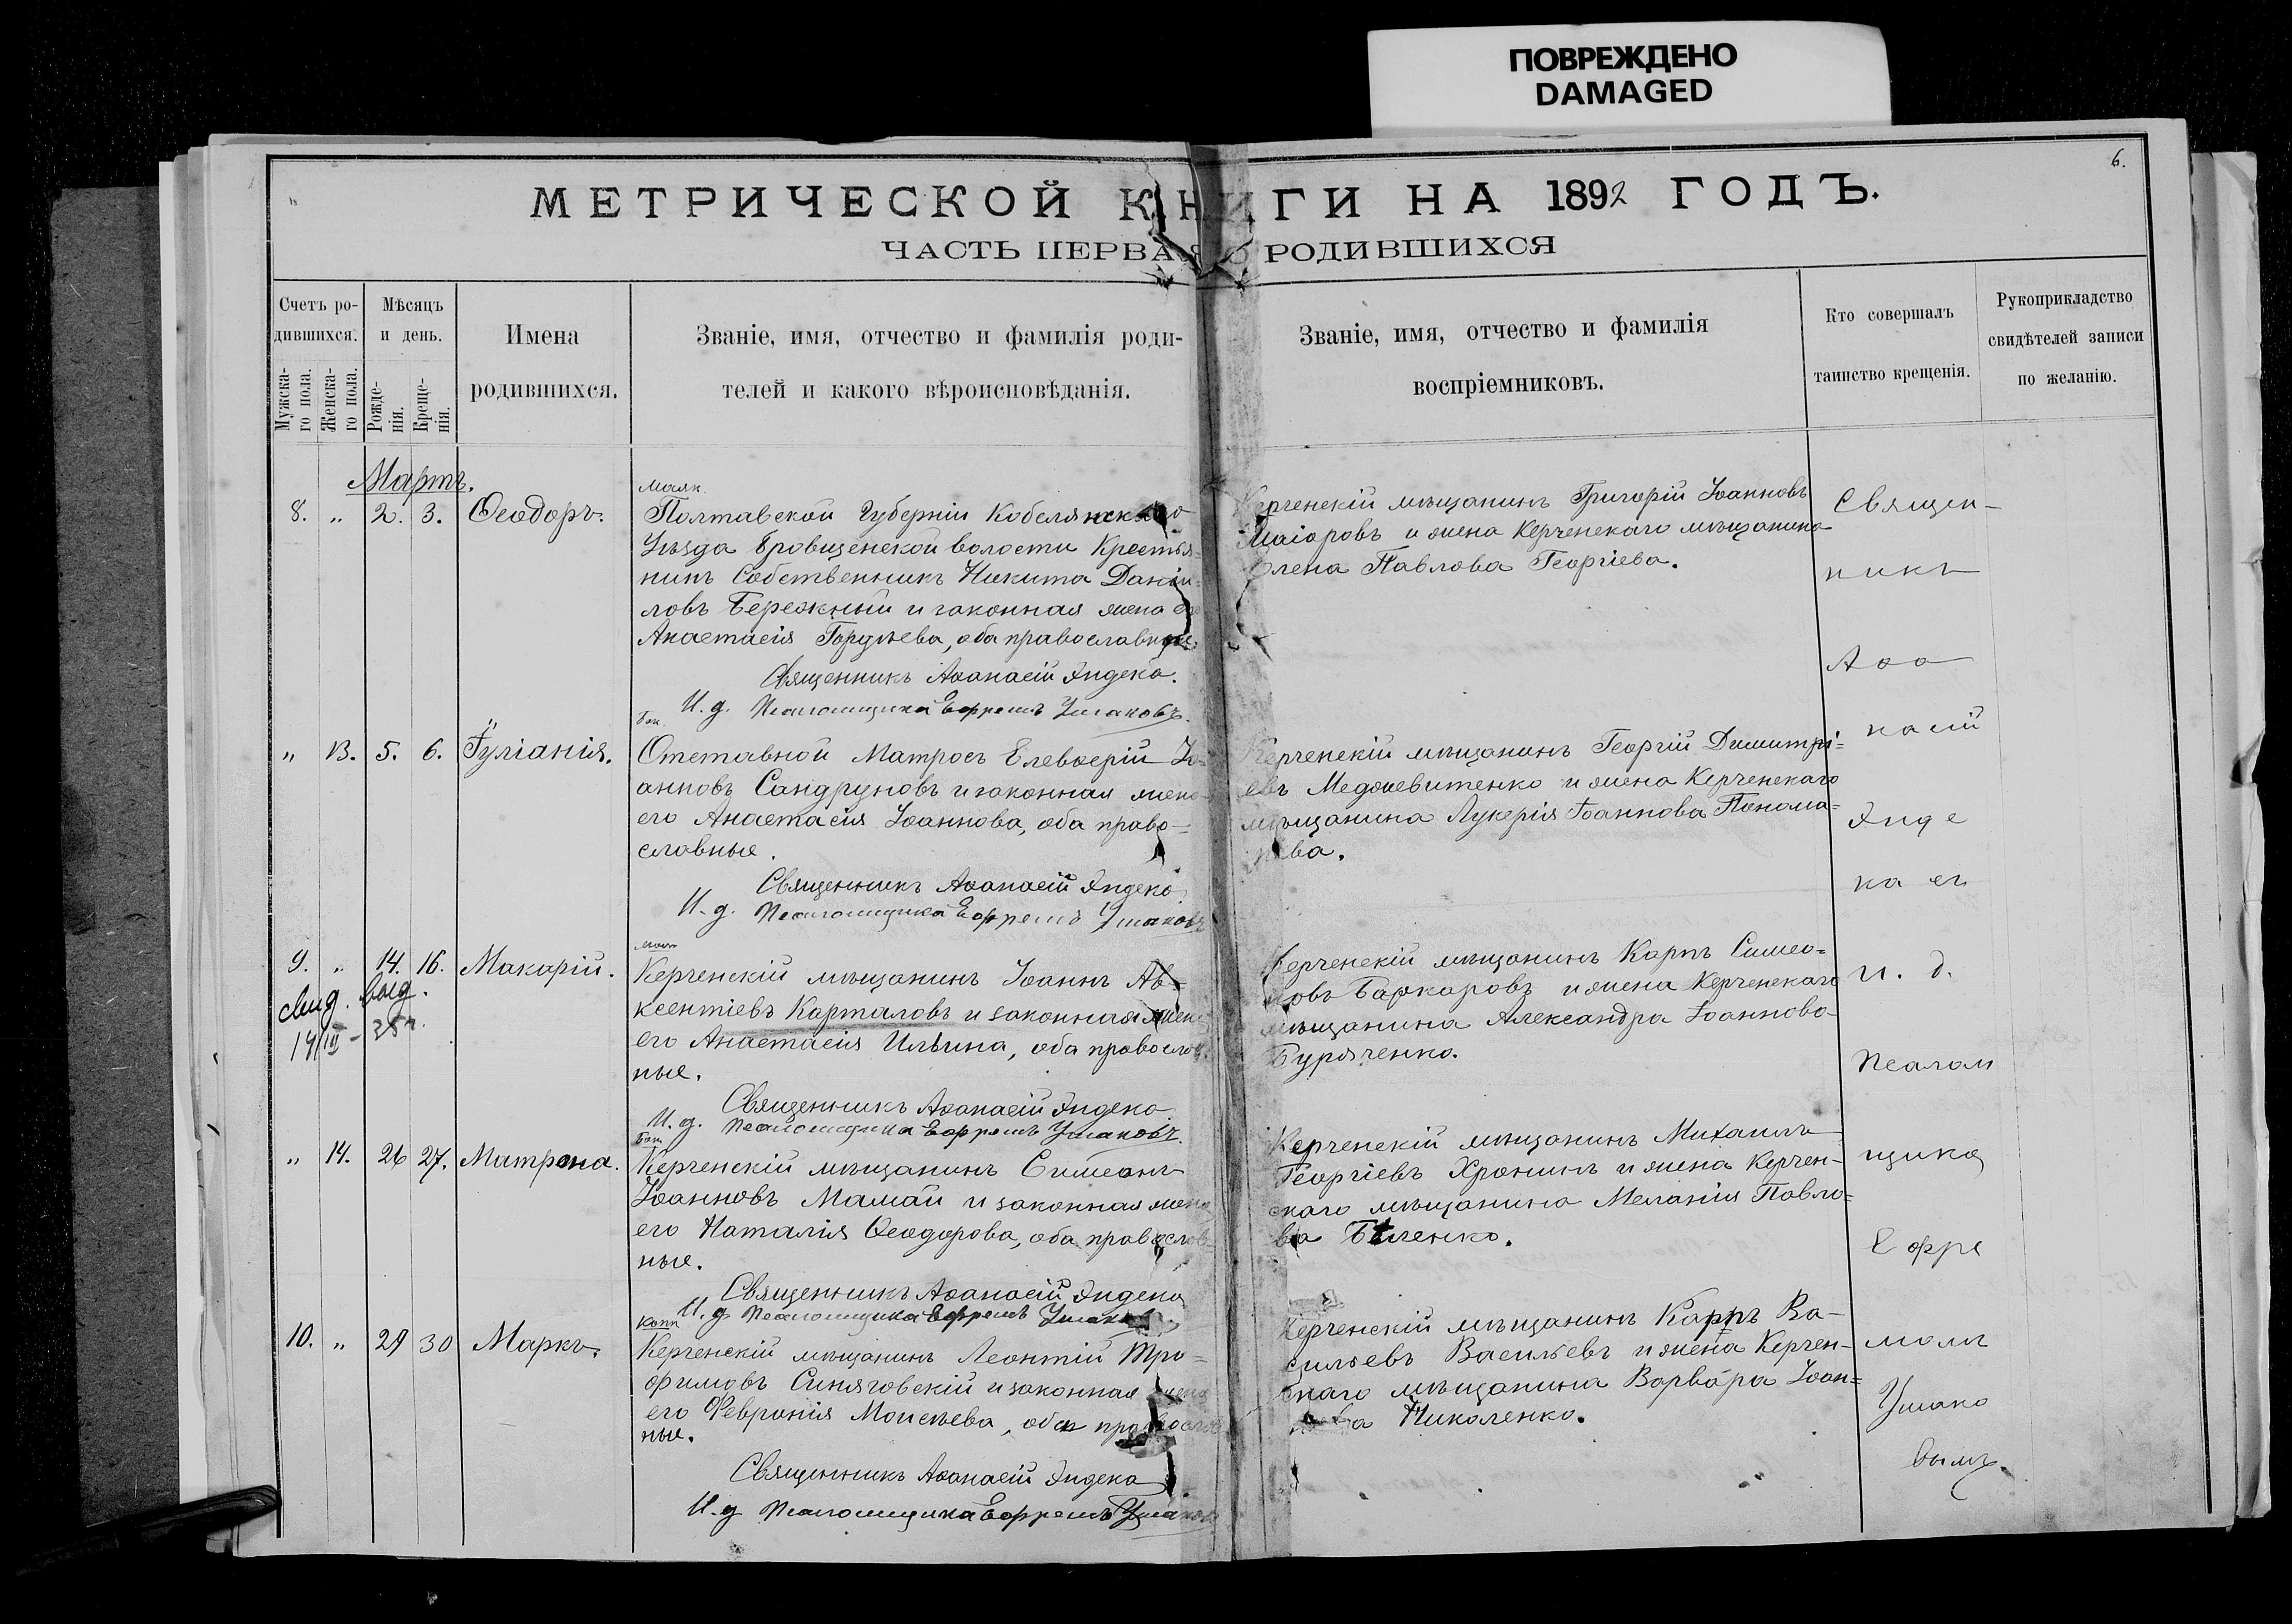 ПОВРЕЖДЕНО
DAMAGED
6.
МЕТРИЧЕСКОЙ КНИГИ НА 1892 ГОДЪ.
ЧАСТЬ ПЕРВАЯ О РОДИВШИХСЯ
Счетъ родившихся.
Мужска-
го пола.
Женска-
го пола.
Мѣсяцъ
и день.
Рожде-
нія.
Креще-
нія.
Имена
родившихся.
Званіе, имя, отчество и фамилія роди-
телей и какого вѣроисповѣданія.
Званіе, имя, отчество и фамилія
воспріемниковъ.
Кто совершалъ
таинство крещенія.
Рукоприкладство
свидѣтелей записи
по желанію.
Мартъ.
8. " 2. 3. Ѳеодоръ.
Маяк.
Полтавской Губерніи Кобелянскаго
Уѣзда Бровщенской волости Крестья-
нинъ Собственникъ Никита Даніи-
ловъ Бережный и законная жена его
Анастасія Гордѣева, оба православные.
Священникъ Аѳанасій Эндека.
И. д. Псаломщика Ефремъ Ушаковъ.
Керченскій мѣщанинъ Григорій Іоанновъ
Маіоровъ и жена Керченскаго мѣщанина
Елена Павлова Георгіева.
" 13. 5. 6. Іуліанія.
Отставной Матросъ Елевѳерій Іо-
анновъ Сандруновъ и законная жена
его Анастасія Іоаннова, оба право-
славные.
Священникъ Аѳанасій Эндека
И. д. Псаломщика Ефремъ Ушаковъ
Керченскій мѣщанинъ Георгій Димитрі-
евъ Медокевитенко и жена Керченскаго
мѣщанина Лукерія Іоаннова Понома-
рева.
9. " 14. 16. Макарій.
свид. выд.
Керченскій мѣщанинъ Іоаннъ Ав-
ксентіевъ Карталовъ и законная жена
его Анастасія Ильина, оба православ-
ные.
Священникъ Аѳанасій Эндека
И. д. Псаломщика Ефремъ Ушаковъ.
Керченскій мѣщанинъ Карпъ Симео-
новъ Баркаровъ и жена Керченскаго
мѣщанина Александра Іоаннова
Буряченко.
" 14. 26 27. Матрона.
Керченскій мѣщанинъ Симеонъ
Іоанновъ Мамай и законная жена
его Наталія Ѳеодорова, оба православ-
ные.
Священникъ Аѳанасій Эндека
И. д. Псаломщика Ефремъ Ушаковъ
Керченскій мѣщанинъ Михаилъ
Георгіевъ Хронинъ и жена Керчен-
скаго мѣщанина Меланія Павло-
ва Беленко.
10. " 29 30 Маркъ.
Керченскій мѣщанинъ Леонтій Тро-
фимовъ Синяговскій и законная жена
его Февронія Моисѣева, оба православ-
ные.
Священникъ Аѳанасій Эндека
И. д. Псаломщика Ефремъ Ушаковъ
Керченскій мѣщанинъ Карпъ Ва-
сильевъ Васильевъ и жена Керчен-
скаго мѣщанина Варвара Іоан-
нова Николенко.
Священ-
никъ
Аѳа
насій
Энде
ка съ
и. д.
Псалом
щика
Ефре
момъ
Ушако
вымъ.